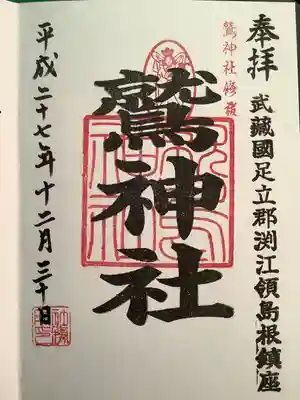 奉拝
武蔵國足立郡渕江領島根鎮座
鷲神社修祓
鷲神社
平成二十七年十二月三十日